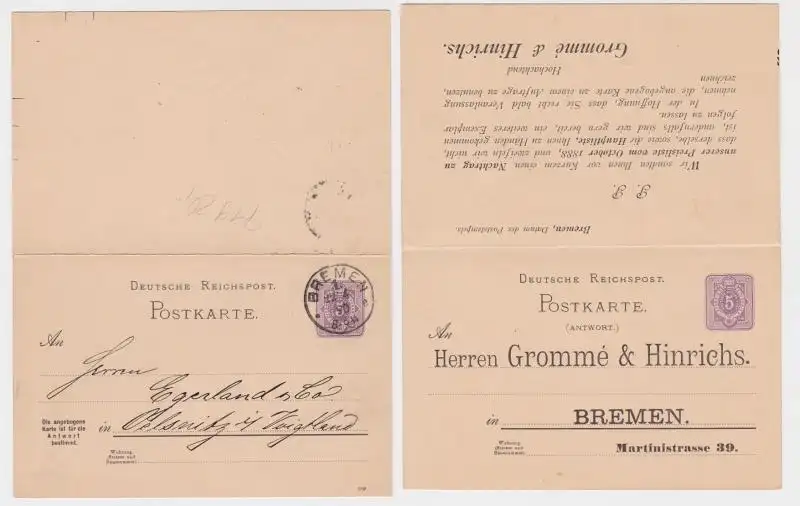 DEUTSCHE REICHSPOST.
POSTKARTE.
BREMEN
An
Herrn
Egerland & Co
in Oelsnitz i/ Voigtland
Die angebogene
Karte ist für die
Antwort
bestimmt.
Wohnung
(Strasse und
Hausnummer).
P. P.
Bremen, Datum des Poststempels.
Wir sandten Ihnen vor Kurzem einen Nachtrag zu
unserer Preisliste vom October 1888, und zweifeln wir nicht,
dass derselbe, sowie die Hauptliste, Ihnen zu Händen gekommen
ist, andernfalls sind wir gern bereit, ein weiteres Exemplar
folgen zu lassen.
In der Hoffnung, dass Sie recht bald Veranlassung
nehmen, die angebogene Karte zu einem Auftrage zu benutzen,
zeichnen
Hochachtend
Grommé & Hinrichs.
DEUTSCHE REICHSPOST.
POSTKARTE.
(ANTWORT.)
5
An
Herren Grommé & Hinrichs.
in BREMEN.
Wohnung
(Strasse und
Hausnummer).
Martinistrasse 39.